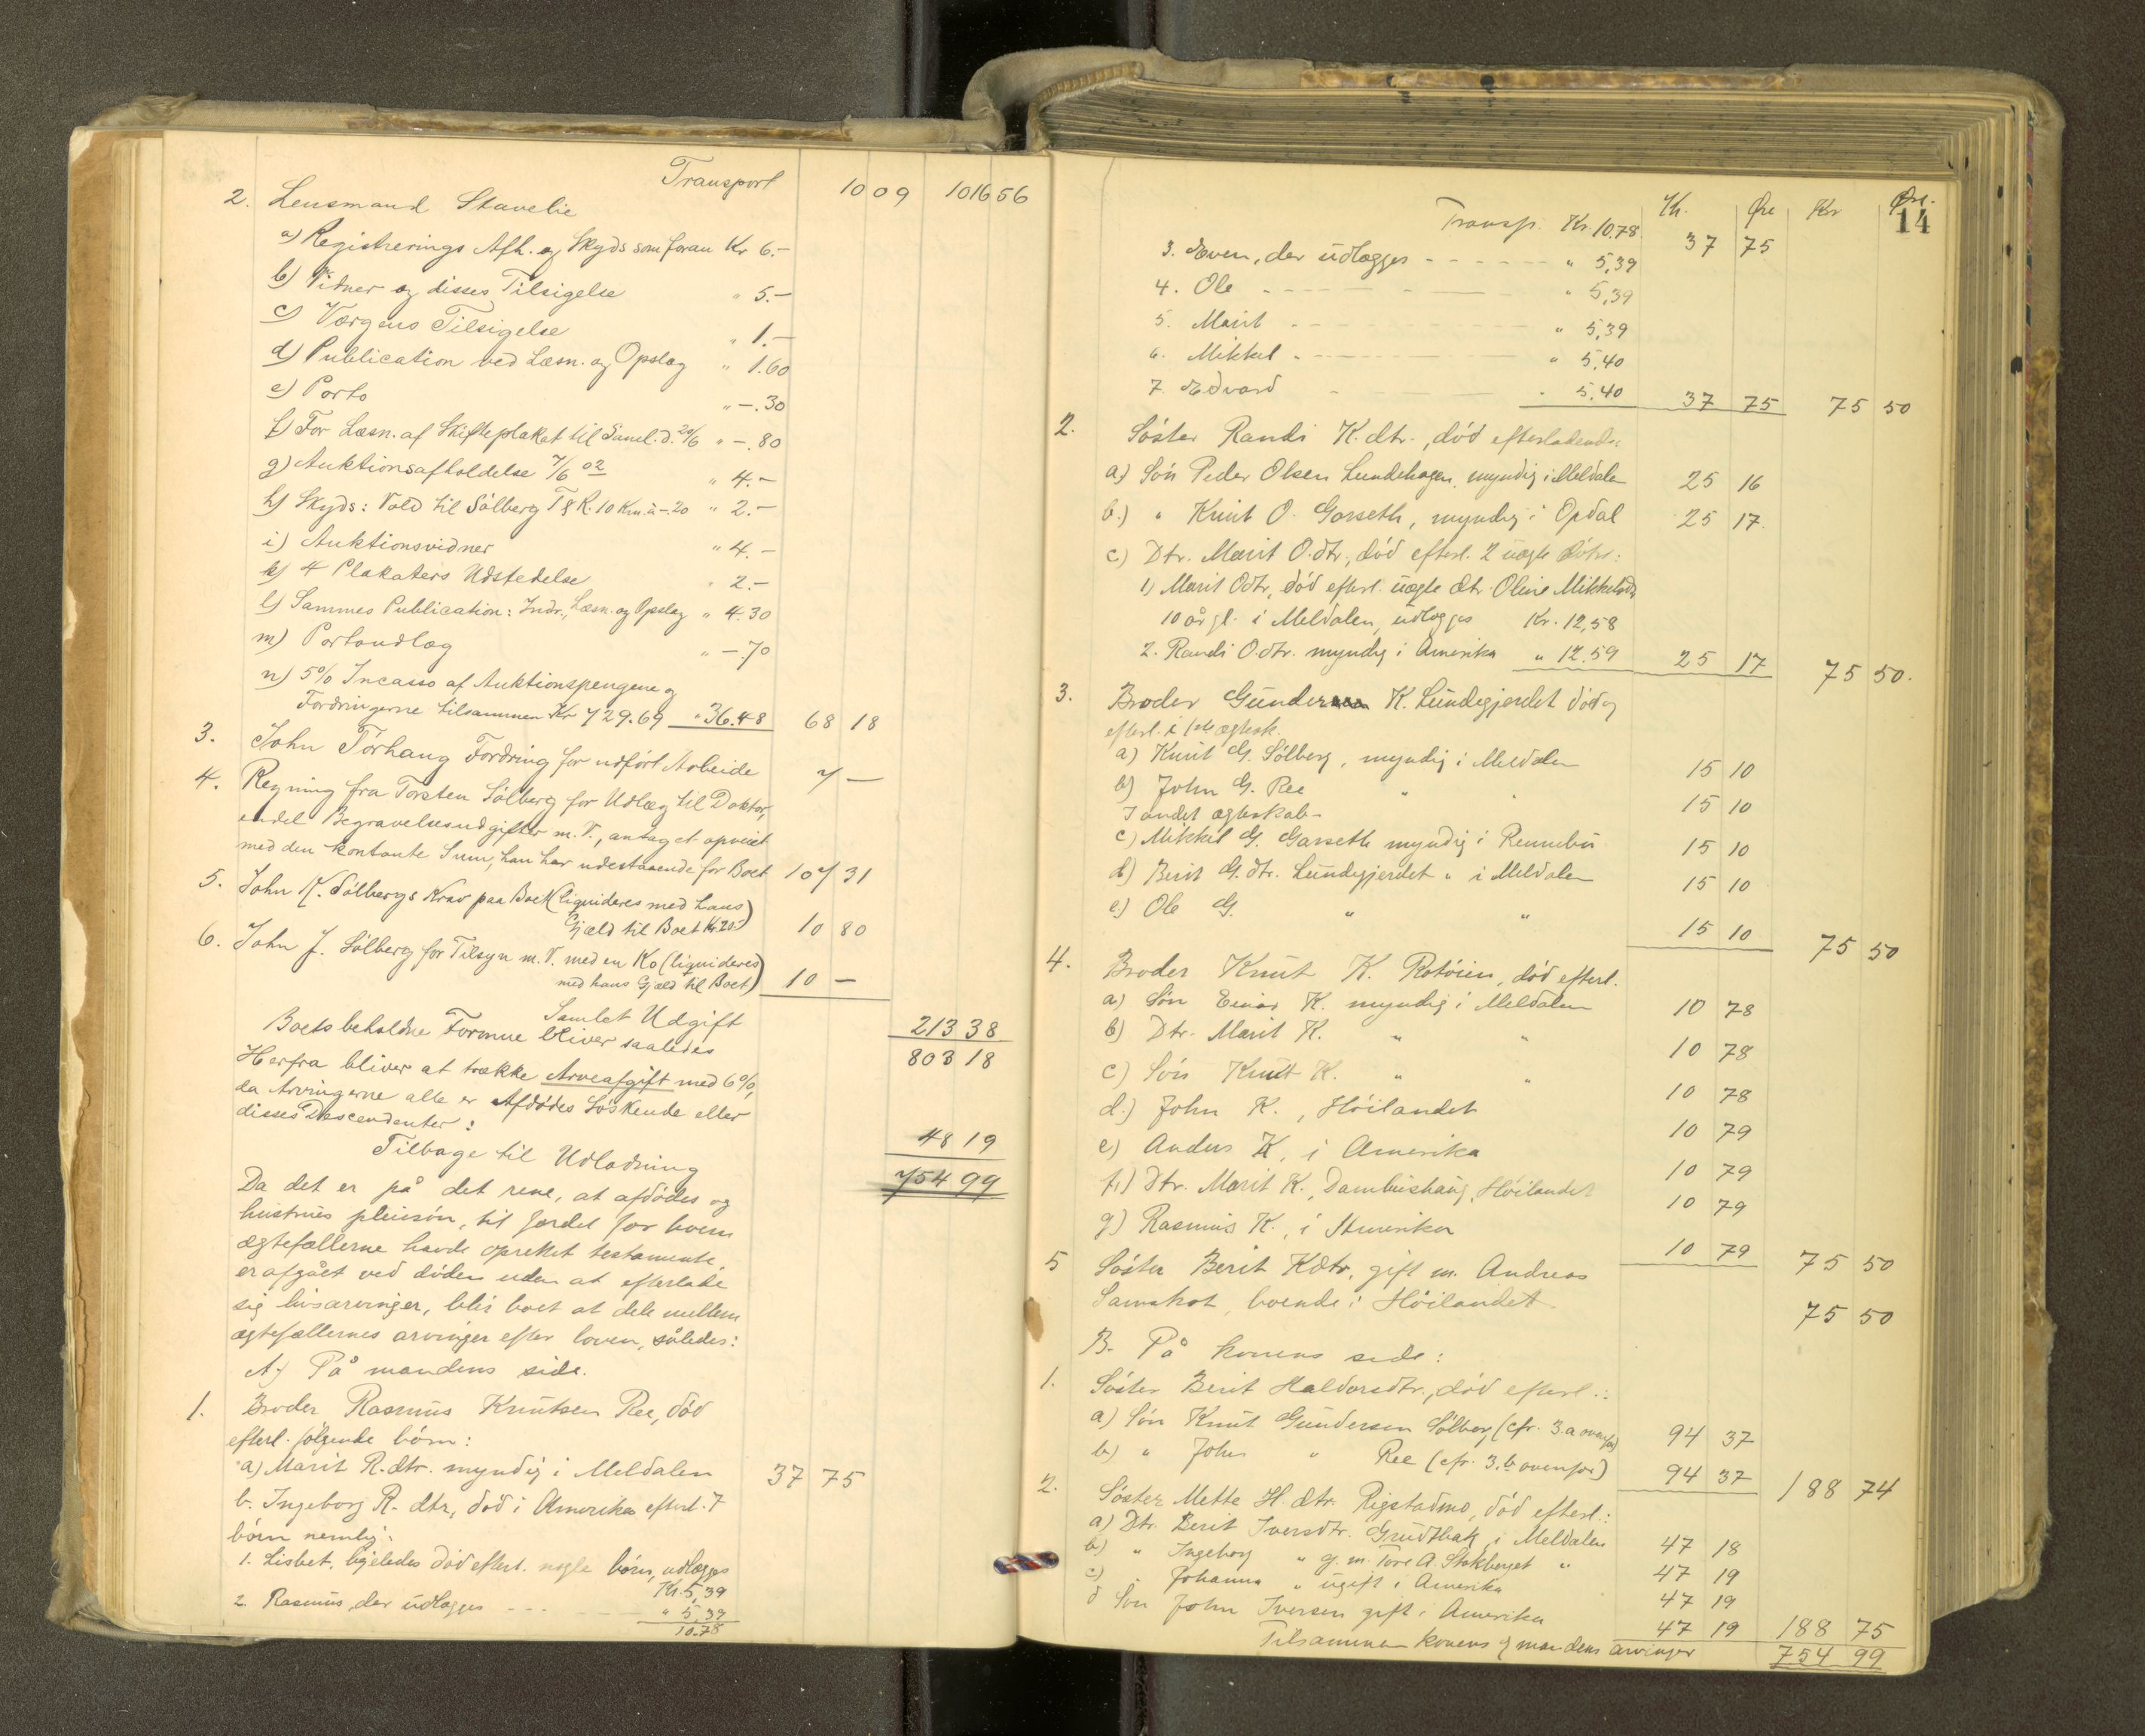 Transport 10 09 1016 56
2. Lensmand Stavelie
a) Registrerings Afh. og Skyds som foran Kr 6.–
b) Vidner og disses Tilsigelse " 5.–
c) Værgens Tilsigelse " 1.–
d) Publication ved Læsn. og Opslag " 1.60
e) Porto " –.30
f) For Læsn. af Skifteplakat til Saml. d. 20/6 " –.80
g) Auktionsafholdelse 7/6 02 " 4.–
h) Skyds: Vold til Sólberg T & R. 10 Km. à –.20 " 2.–
i) Auktionsvidner " 4.–
k) 4 Plakaters Udstedelse " 2.–
l) Sammes Publication: Indr., Læsn. og Opslag " 4.30
m) Portoudlæg " –.70
n) 5% Incasso af Auktionspengene og
Fordringerne tilsammen Kr 729.69 " 36.48 68 18
3. John Tórhaug Fordring for udfórt Arbeide 7 –
4. Regning fra Torsten Sólberg for Udlæg til Doktor,
endel Begravelsesudgifter m. V., antaget opveiet
med den kontante Sum, han har udestaaende for Boet 107 31
5. John K. Sólbergs Krav paa Boet (liquideres med hans
Gjæld til Boet Kr 20.–) 10 80
6. John J. Sólberg for Tilsyn m. V. med en Ko (liquideres
med hans Gjæld til Boet) 10 –
Samlet Udgift 213 38
Boets beholdne Formue bliver saaledes 803 18
Herfra bliver at trække Arveafgift med 6%,
da Arvingerne alle er Afdødes Sóskende eller
disses Descendenter: 48 19
Tilbage til Udlodning 754 99
Da det er på det rene, at afdódes og
hustrues pleiesón, til fordel for hvem
ægtefællerne havde oprettet testamente,
er afgået ved dóden uden at efterlade
sig livsarvinger, blir boet at dele mellem
ægtefællernes arvinger efter loven, således:
A) På mandens side.
1. Broder Rasmus Knutsen Ree, dód
efterl. fólgende bórn:
a) Marit R. dtr. myndig i Meldalen 37 75
b. Ingeborg R. dtr, dód i Amerika efterl. 7
bórn nemlig:
1. Lisbet, ligeledes dód efterl. nogle bórn, udlægges
Kr. 5,39
2. Rasmus, der udlægges - - - " 5,39
10.78
14
Kr. Øre Kr Øre.
Transp. Kr. 10,78 37 75
3. Even, der udlægges - - - " 5,39
4. Ole - - - " 5,39
5. Marit - - - " 5,39
6. Mikkel - - - " 5,40
7. Edvard - - - " 5,40 37 75 75 50
2. Sóster Randi K. dtr., dód efterladende:
a) Són Peder Olsen Lundehagen, myndig i Meldalen 25 16
b.) " Knut O. Garseth, myndig i Opdal 25 17
c) Dtr. Marit O. dtr., dód efterl. 2 uægte dótre:
1) Marit Odtr, dód efterl. uægte dtr. Oline Mikkelsdtr
10 år gl. i Meldalen, udlægges Kr. 12,58
2. Randi O. dtr. myndig i Amerika " 12.59 25 17 75 50.
3. Broder Gunder K. Lundegjerdet dód og
efterl. i 1ste ægtesk.
a) Knut G. Sólberg, myndig i Meldalen 15 10
b) John G. Ree " " 15 10
I andet ægteskab
c) Mikkel G. Garseth myndig i Rennebu 15 10
d) Berit G. dtr. Lundegjerdet " i Meldalen 15 10
e) Ole G. " " 15 10 75 50
4. Broder Knut K. Rotóien, dód efterl.
a) Són Einar K. myndig i Meldalen 10 78
b) Dtr. Marit K. " " 10 78
c) Són Knut K. " " 10 78
d.) John K., Hóilandet 10 79
e) Anders K. i Amerika 10 79
f.) Dtr. Marit K., Dambushaug, Hóilandet 10 79
g) Rasmus K., i Amerika 10 79 75 50
5 Sóster Berit Kdtr, gift m. Andreas
Samskot, boende i Hóilandet 75 50
B. På konens side:
1. Sóster Berit Haldorsdtr., dód efterl.:
a) Són Knut Gundersen Sólberg (cfr. 3. a ovenfor) 94 37
b) " John " Ree (cfr. 3. b ovenfor) 94 37 188 74
2. Sóster Mette H. dtr. Rigstadmo, dód efterl.:
a) Dtr. Berit Iversdtr. Grudtbak i Meldalen 47 18
b) " Ingeborg " g. m. Tore A. Stokberget " 47 19
c) " Johanna " ugift i Amerika 47 19
d Són John Iversen gift i Amerika 47 19 188 75
Tilsammen konens og mandens arvinger 754 99